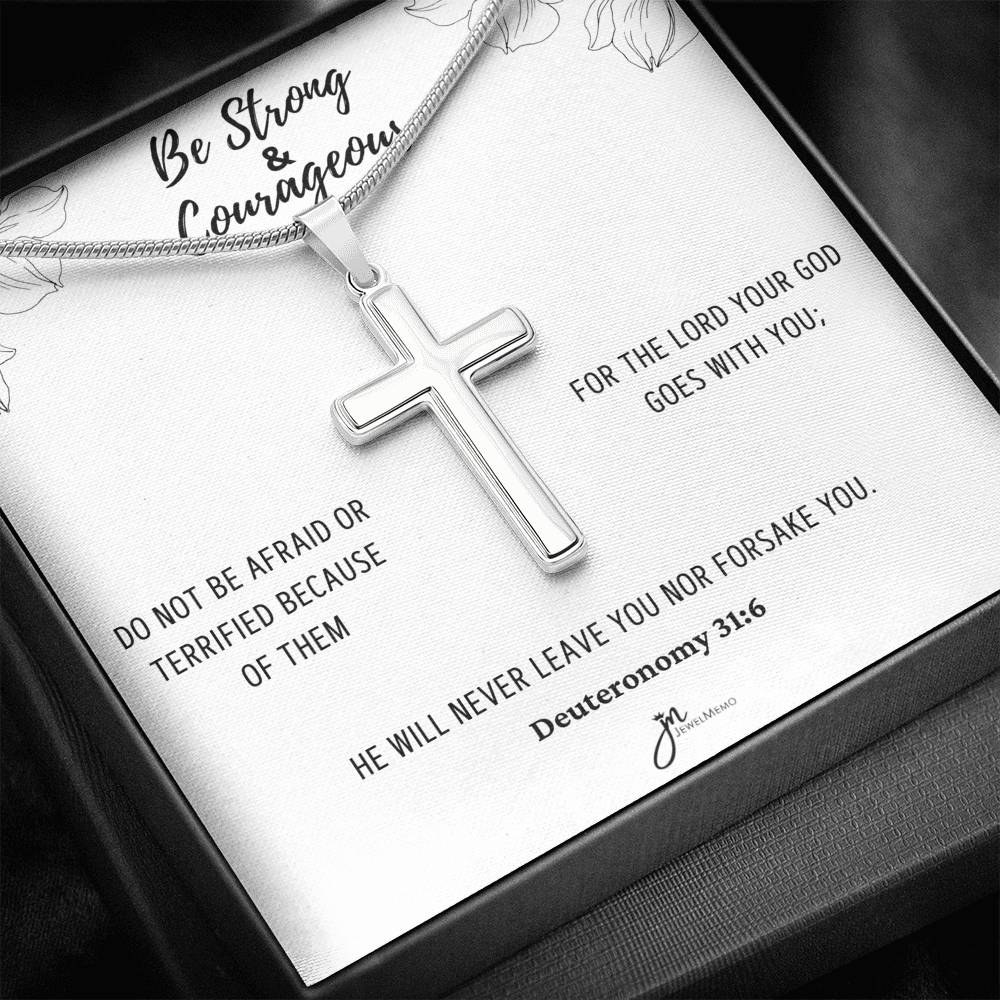 Be Strong
&
Courageous
DO NOT BE AFRAID OR
TERRIFIED BECAUSE
OF THEM
FOR THE LORD YOUR GOD
GOES WITH YOU;
HE WILL NEVER LEAVE YOU NOR FORSAKE YOU.
Deuteronomy 31:6
jm
JEWELMEMO